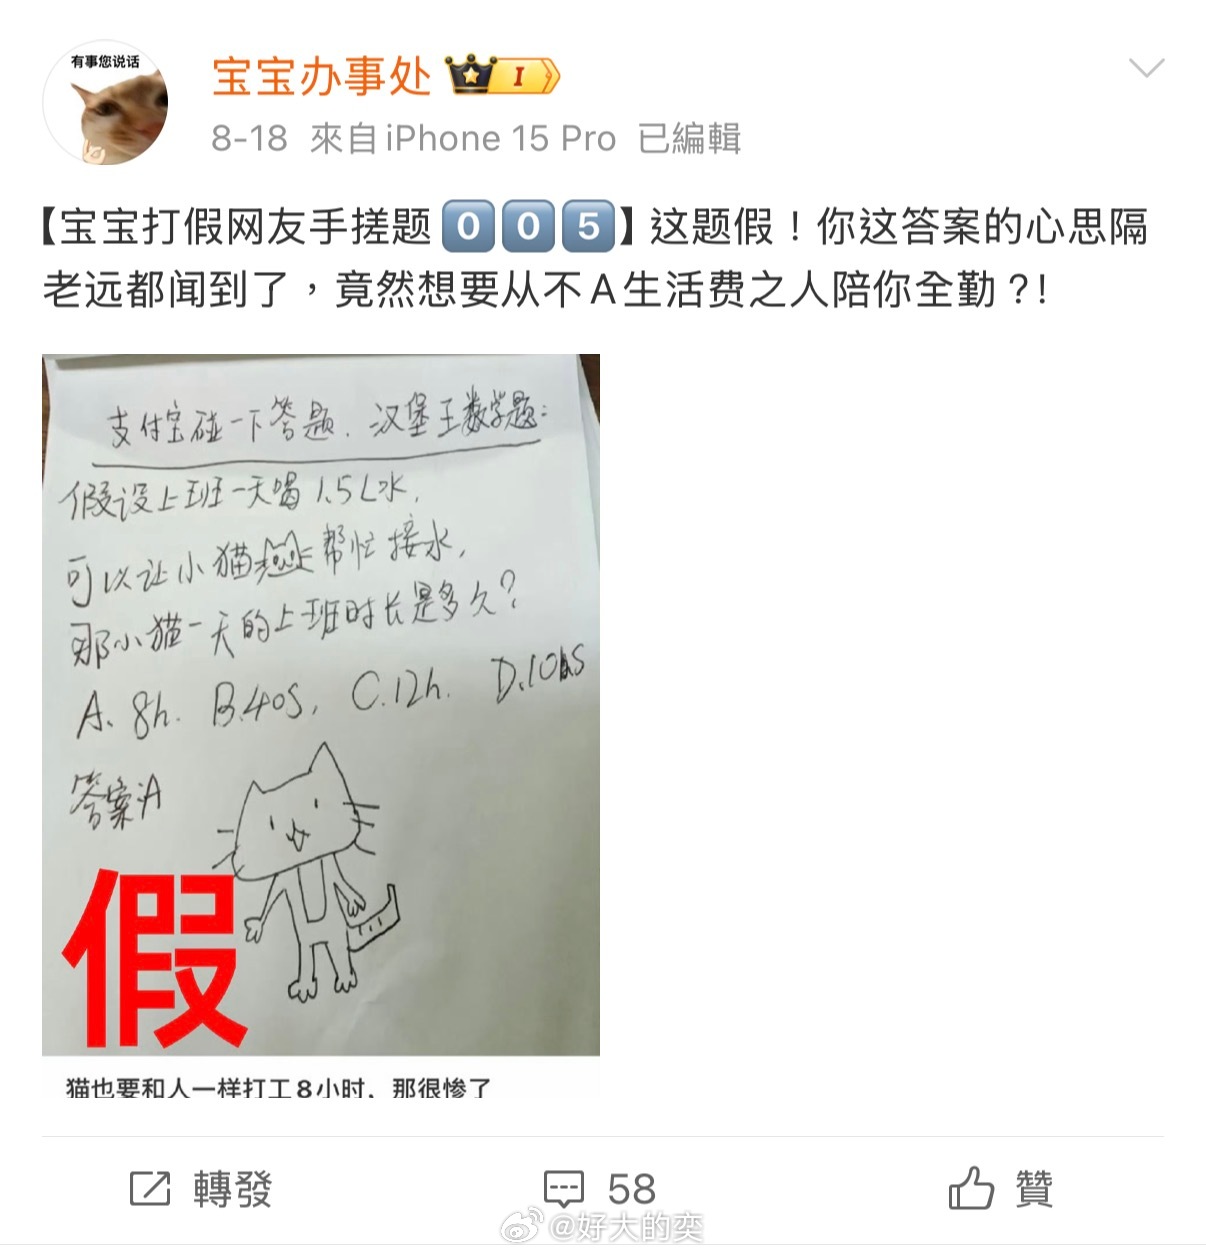 有事您说话
宝宝办事处
I
8-18 來自 iPhone 15 Pro 已編輯
【宝宝打假网友手搓题005】这题假！你这答案的心思隔
老远都闻到了，竟然想要从不A生活费之人陪你全勤？!
支付宝碰一下答题. 汉堡王数学题:
假设上班一天喝1.5L水,
可以让小猫帮忙接水,
那小猫一天的上班时长是多久?
A. 8h. B.40s, C.12h. D.10
答案:A
假
猫也要和人一样打工8小时，那很惨了
轉發
58
贊
@好大的奕